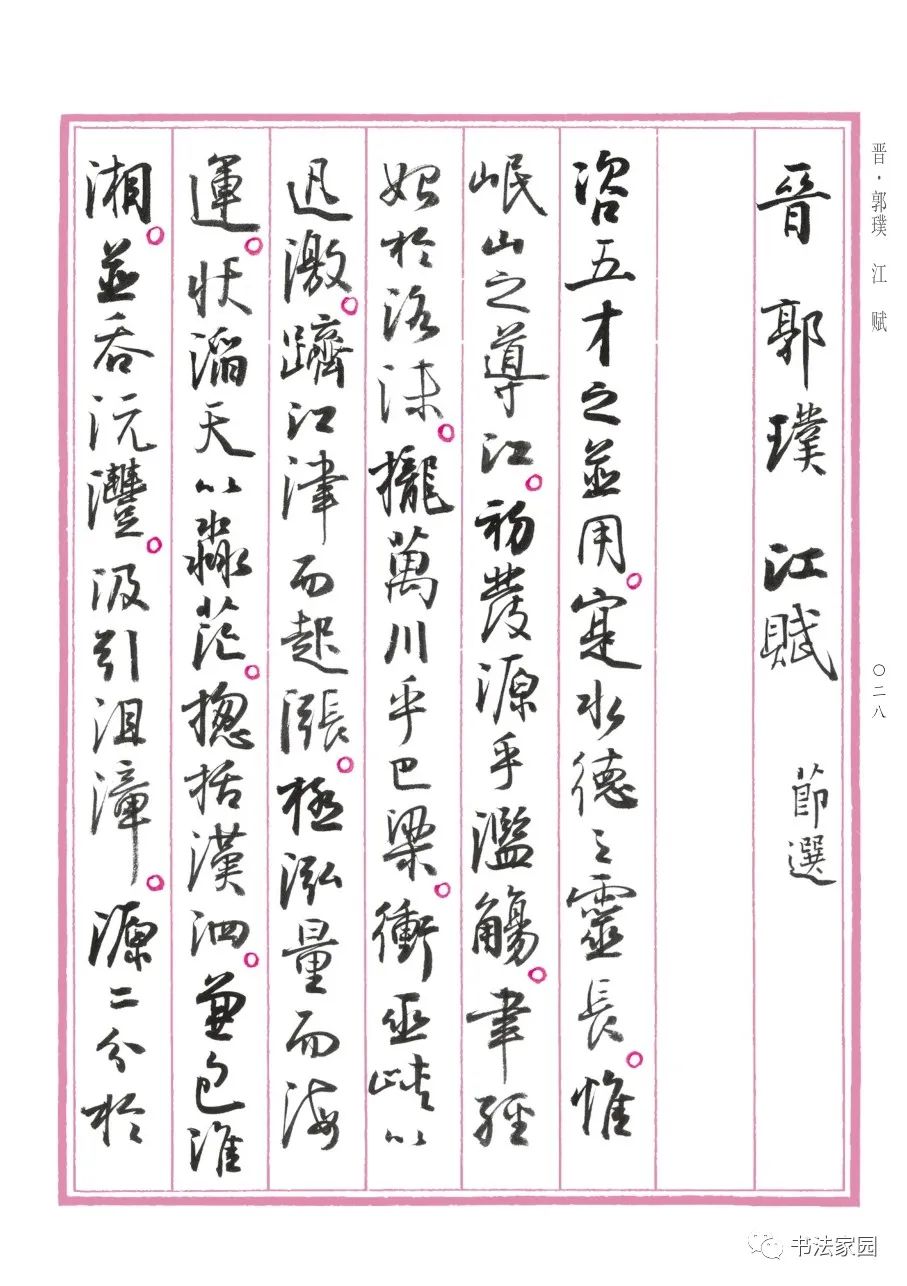 晋·郭璞 江 赋
〇二八
晉 郭璞 江賦 節選
咨五才之並用。寔水德之靈長。惟
岷山之導江。初發源乎濫觴。聿經
始於洛沬。攏萬川乎巴梁。衝巫峽以
迅激。躋江津而起漲。極泓量而海
運。狀滔天以淼茫。揔括漢泗。兼包淮
湘。並吞沅灃。汲引沮漳。源二分於
书法家园